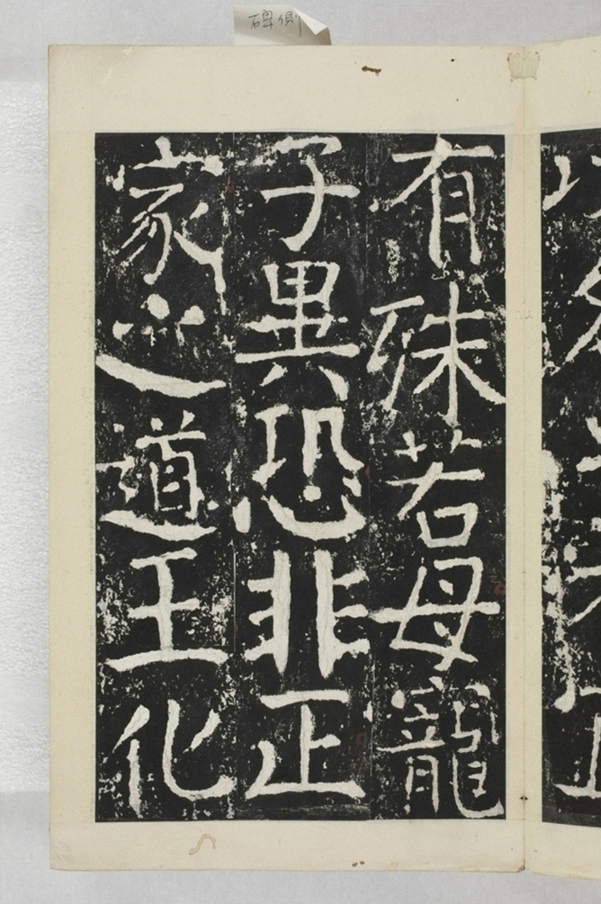 碑側
有殊若母寵
子異恐非正
家之道王化